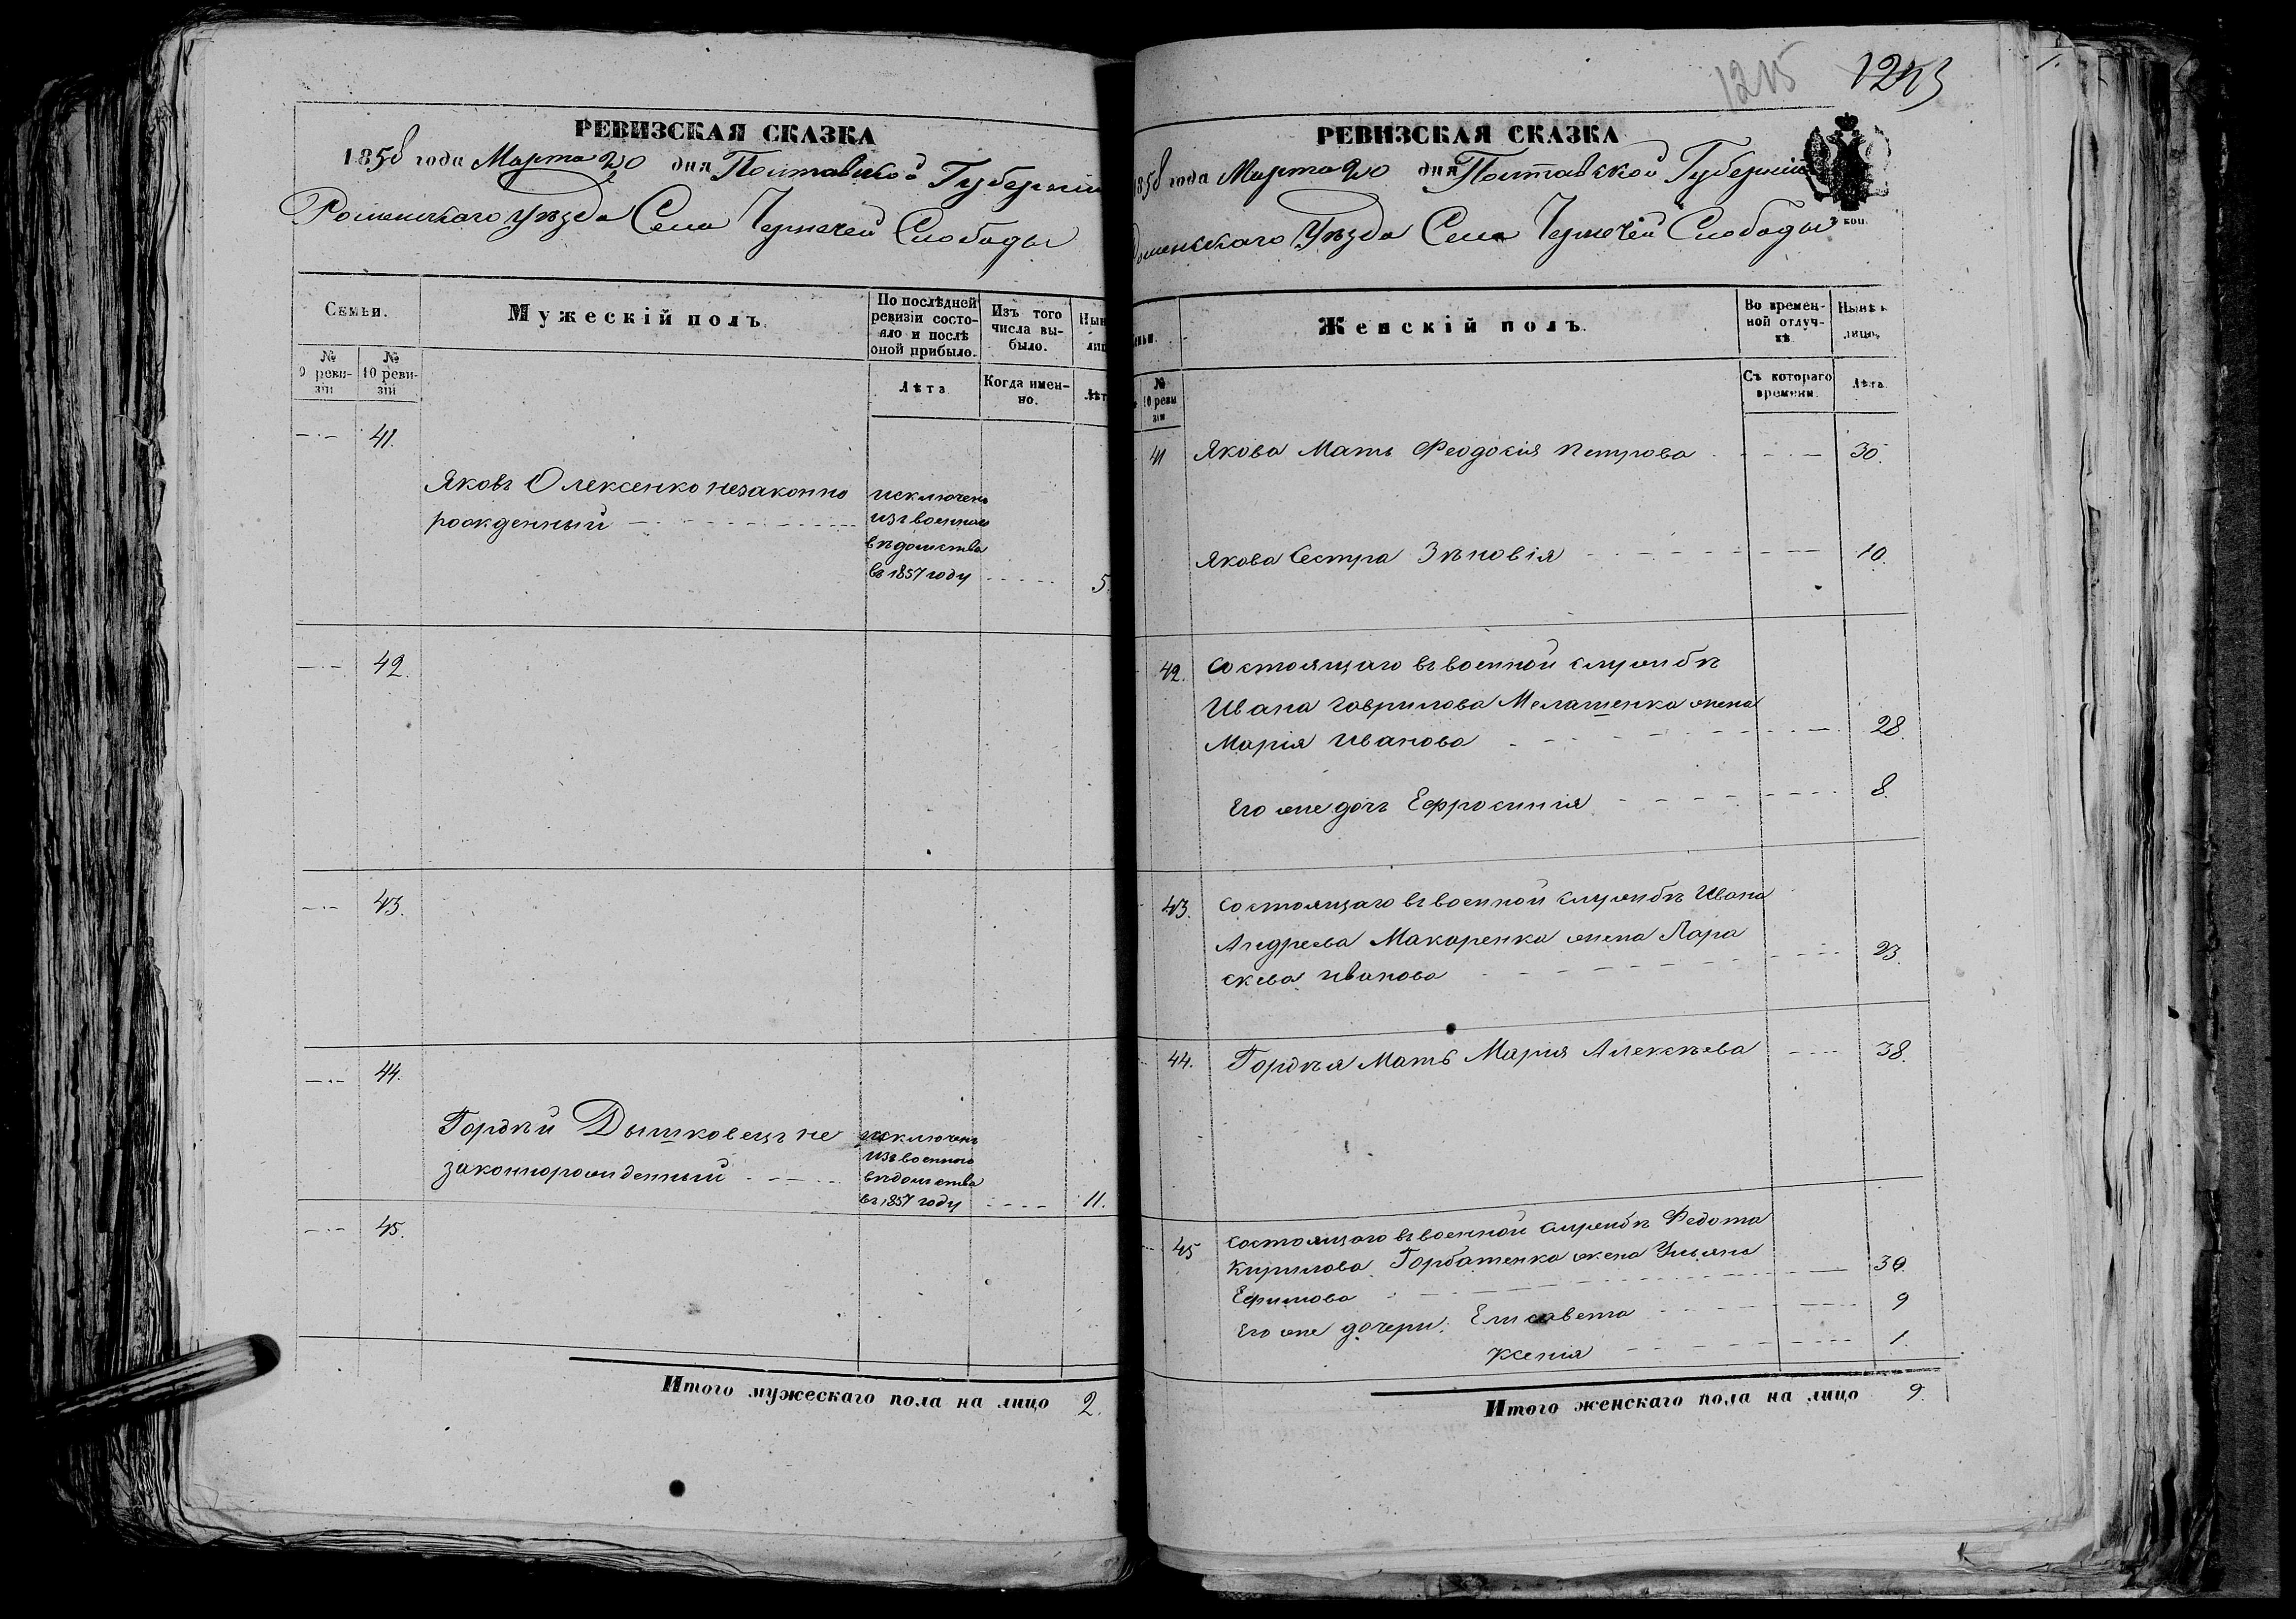 РЕВИЗСКАЯ СКАЗКА
1858 года Марта 20 дня Полтавской Губерніи
Роменскаго Уѣзда Села Чернечей Слободы
Семьи.
Мужескій полъ.
По послѣдней ревизіи состояло и послѣ оной прибыло.
Изъ того числа выбыло.
№ 9 ревизіи
№ 10 ревизіи
Лѣта
Когда именно.
41.
Яковъ Олексенко незаконно
рожденный
исключенъ
изъ военнаго
вѣдомства
въ 1857 году
5.
42.
43.
44.
Гордѣй Дышковецъ не
законнорожденный
исключенъ
изъ военнаго
вѣдомства
въ 1857 году
11.
45.
Итого мужескаго пола на лицо 2.
1215 1243
РЕВИЗСКАЯ СКАЗКА
1858 года Марта 20 дня Полтавской Губерніи
Роменскаго Уѣзда Села Чернечей Слободы
коп.
Женскій полъ.
Во временной отлучкѣ.
Нынѣ на лицо.
№ 10 ревизіи
Съ котораго времени.
Лѣта.
41 Якова Мать Феодосія Петрова 30.
Якова Сестра Зѣновія 10.
42. Состоящаго въ военной службѣ
Ивана Гаврилова Мелашенка жена
Марія Иванова 28.
Его же дочь Ефросинія 8.
43. Состоящаго въ военной службѣ Ивана
Андреева Макаренка жена Пара
скева Иванова 23.
44. Гордѣя Мать Марія Алексѣева 38.
45 Состоящаго въ военной службѣ Федота
Кирилова Горбатенка жена Ульяна
Ефимова 30.
Его же дочери: Елисавета 9
Ксенія 1.
Итого женскаго пола на лицо 9